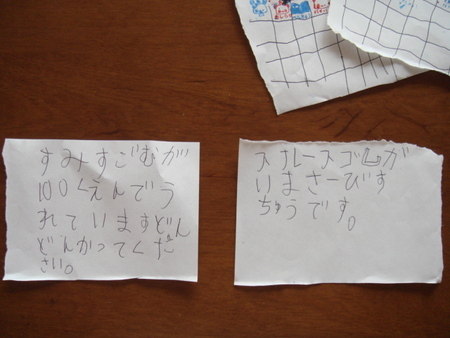 すみすごむが
100くえんでう
れていますどん
どんかってくだ
さい。
スナレースゴムが
いまさーびす
ちゅうです。